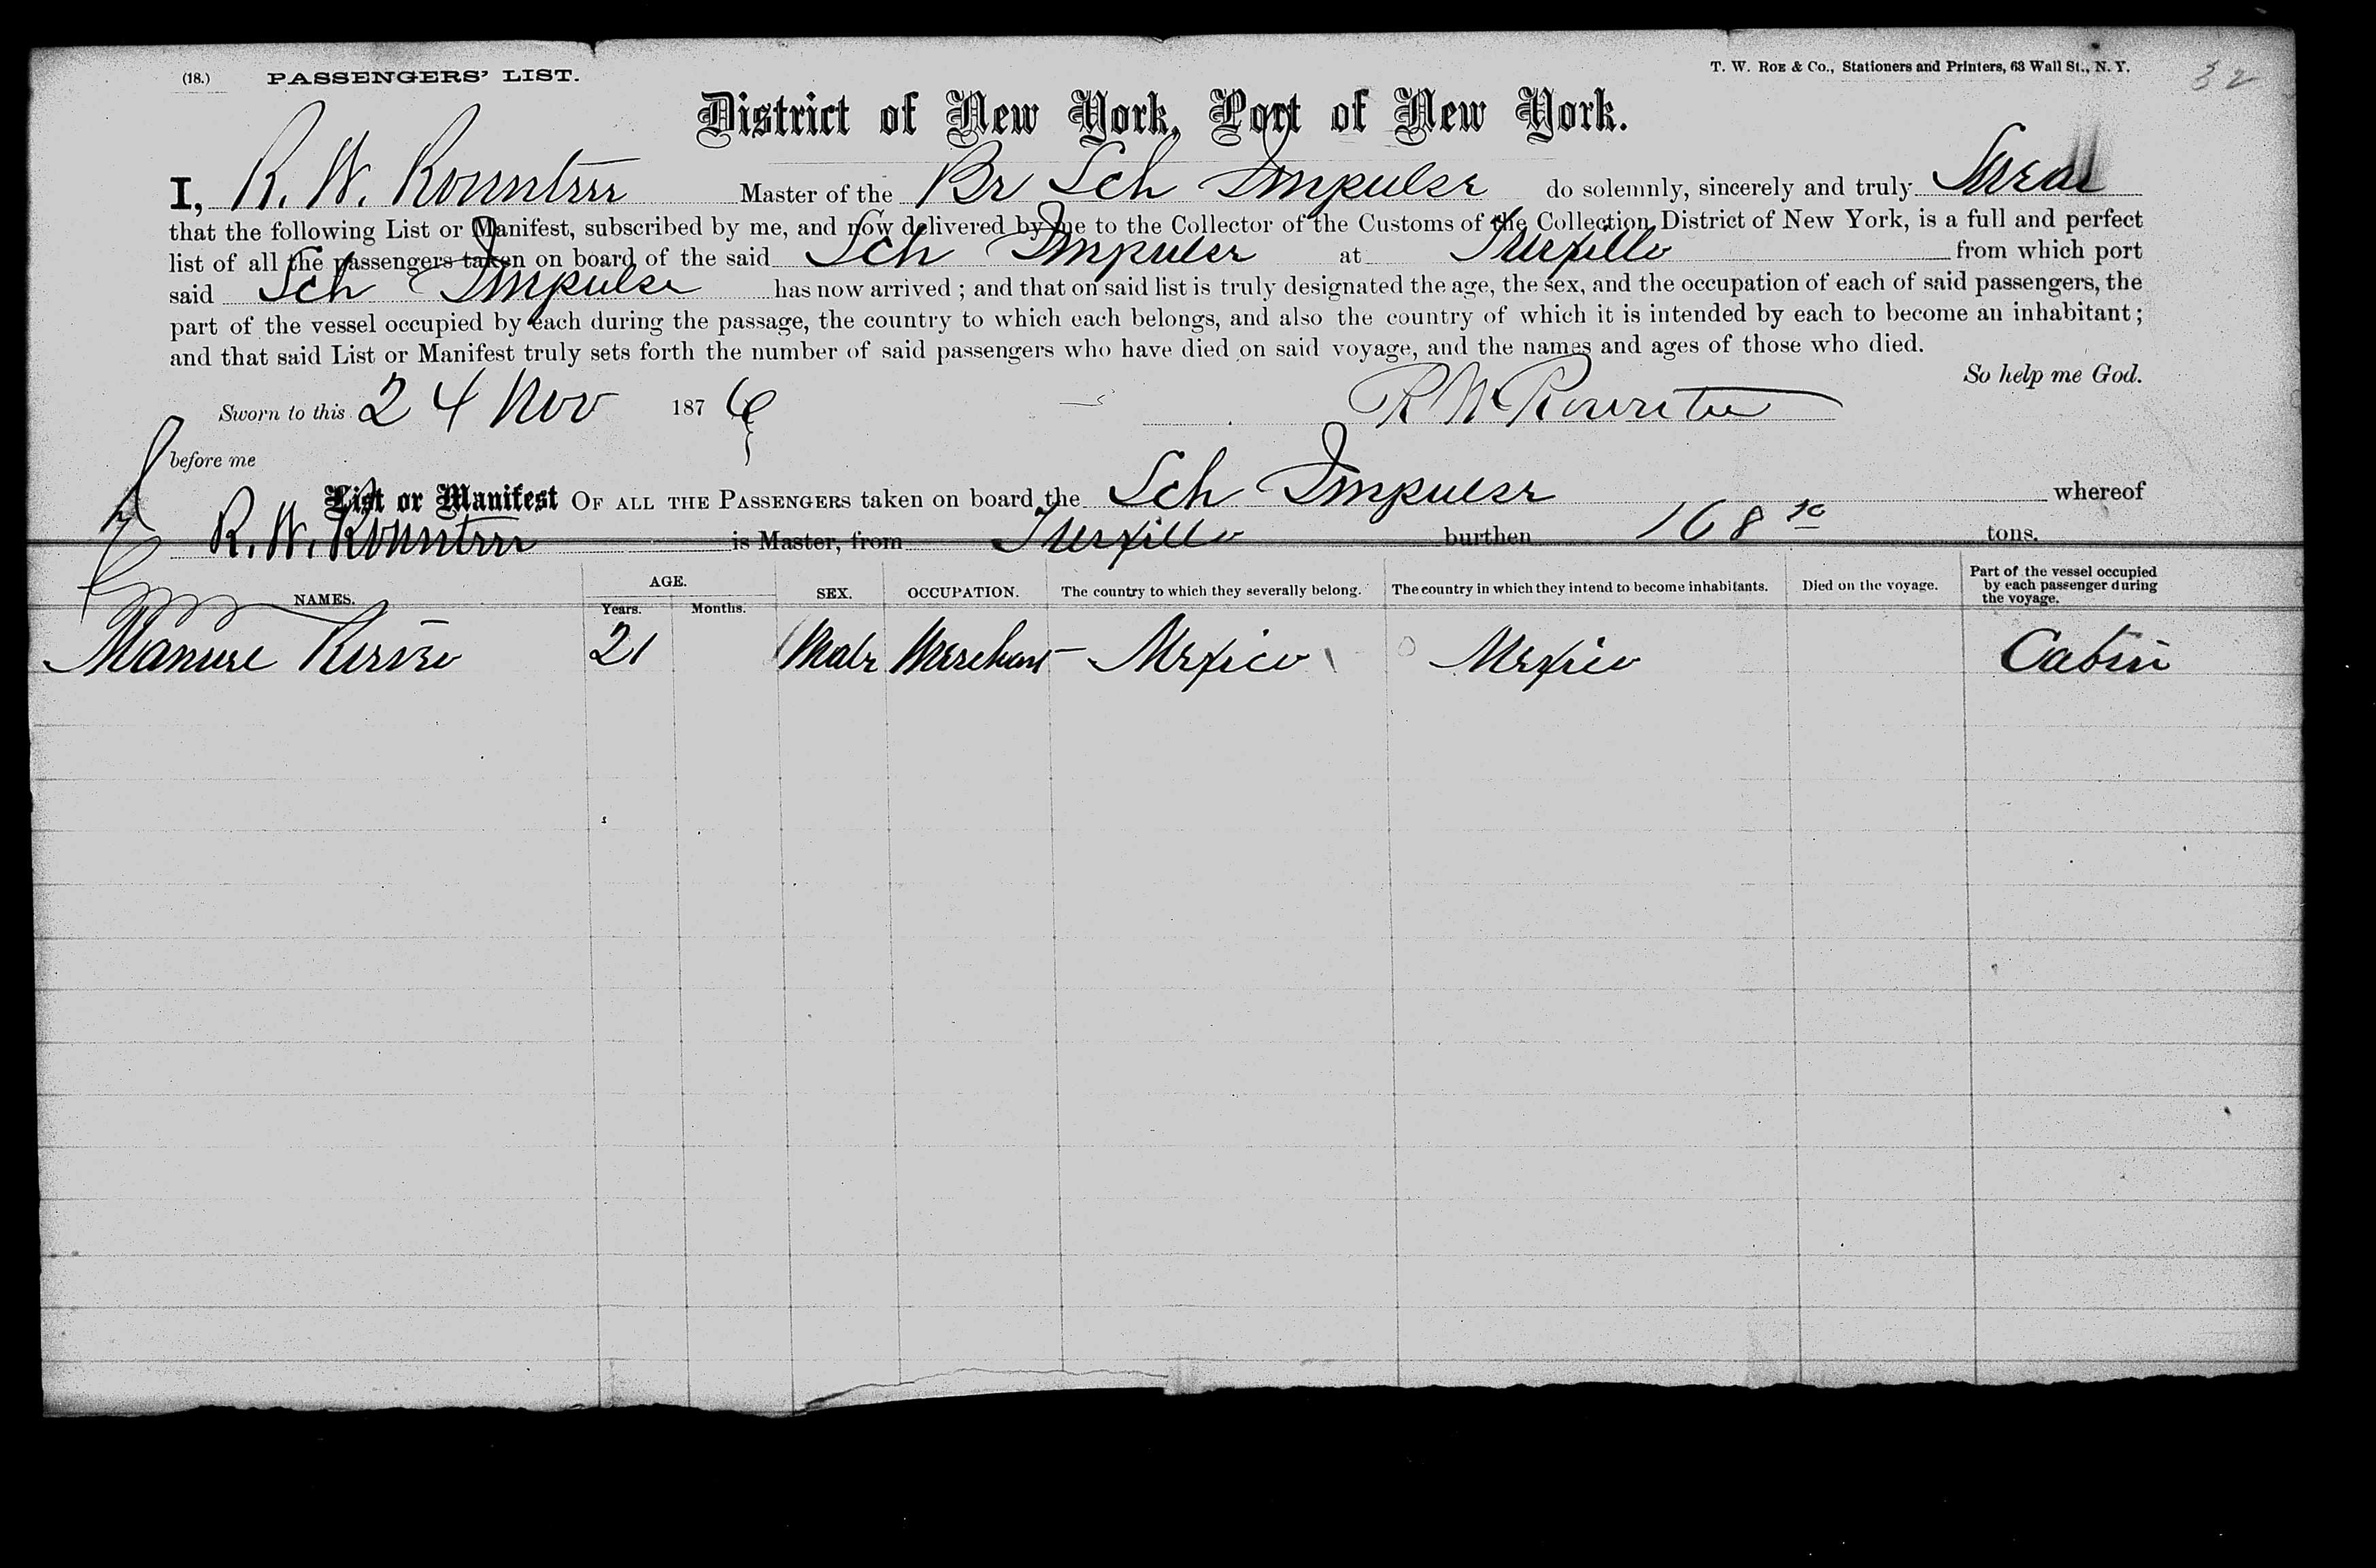 (18.) PASSENGERS' LIST. T. W. Roe & Co., Stationers and Printers, 63 Wall St., N. Y. 32
District of New York, Port of New York.
I, R. W. Rountree Master of the Br Sch Impulse do solemnly, sincerely and truly Swear
that the following List or Manifest, subscribed by me, and now delivered by me to the Collector of the Customs of the Collection District of New York, is a full and perfect
list of all the passengers taken on board of the said Sch Impulse at from which port
said Sch Impulse has now arrived ; and that on said list is truly designated the age, the sex, and the occupation of each of said passengers, the
part of the vessel occupied by each during the passage, the country to which each belongs, and also the country of which it is intended by each to become an inhabitant ;
and that said List or Manifest truly sets forth the number of said passengers who have died on said voyage, and the names and ages of those who died.
So help me God.
Sworn to this 24 Nov 1876 R W Rountree
before me
List or Manifest OF ALL THE PASSENGERS taken on board the Sch Impulse whereof
R. W. Rountree is Master, from burthen 168 tons.
NAMES. AGE. Years. Months. SEX. OCCUPATION. The country to which they severally belong. The country in which they intend to become inhabitants. Died on the voyage. Part of the vessel occupied by each passenger during the voyage.
21 Male Merchant Mexico Mexico Cabin